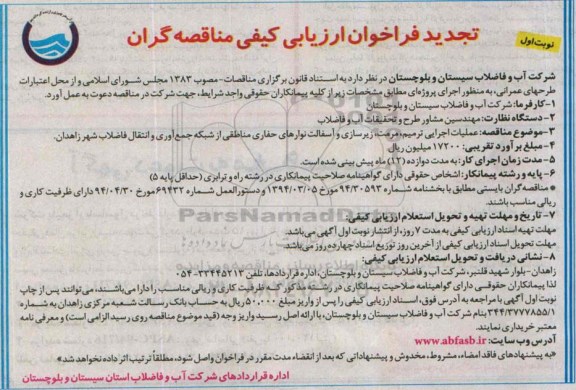 تجدید فراخوان ارزیابی کیفی مناقصه گران
نوبت اول
شرکت آب و فاضلاب سیستان و بلوچستان در نظر دارد به استناد قانون برگزاری مناقصات - مصوب ۱۳۸۳ مجلس شورای اسلامی و از محل اعتبارات
طرحهای عمرانی، به منظور اجرای پروژه‌ای مطابق مشخصات زیر از کلیه پیمانکاران حقوقی واجد شرایط، جهت شرکت در مناقصه دعوت به عمل آورد.
۱- کارفرما: شرکت آب و فاضلاب سیستان و بلوچستان
۲- دستگاه نظارت: مهندسین مشاور طرح و تحقیقات آب و فاضلاب
۳- موضوع مناقصه: عملیات اجرایی ترمیم، مرمت، زیرسازی و آسفالت نوارهای حفاری مناطقی از شبکه جمع آوری و انتقال فاضلاب شهر زاهدان.
۴- مبلغ برآورد تقریبی: ۱۷۲۰۰ میلیون ریال
۵- مدت زمان اجرای کار: به مدت دوازده (۱۲) ماه پیش بینی شده است.
۶- پایه و رشته پیمانکار: اشخاص حقوقی دارای گواهینامه صلاحیت پیمانکاری در رشته راه و ترابری (حداقل پایه ۵)
* مناقصه گران بایستی مطابق با بخشنامه شماره ۹۴/۳۰۵۹۳ مورخ ۱۳۹۴/۰۳/۰۵ و دستورالعمل شماره ۶۹۴۳۲ مورخ ۹۴/۰۴/۳۰ دارای ظرفیت کاری و
ریالی مناسب باشند.
۷- تاریخ و مهلت تهیه و تحویل استعلام ارزیابی کیفی:
مهلت تهیه اسناد ارزیابی کیفی به مدت ۷ روز، از انتشار نوبت اول آگهی می‌باشد.
مهلت تحویل اسناد ارزیابی کیفی از آخرین روز توزیع اسناد چهارده روز می‌باشد.
ParsNamadData
۸- نشانی دریافت و تحویل استعلام ارزیابی کیفی:
زاهدان - بلوار شهید قلنبر، شرکت آب و فاضلاب سیستان و بلوچستان، اداره قراردادها، تلفن ۳۳۴۴۵۲۱۳-۰۵۴
لذا پیمانکاران حقوقی دارای گواهینامه صلاحیت پیمانکاری در رشته مذکور که ظرفیت کاری و ریالی مناسب را دارا می‌باشند، می‌توانند پس از چاپ
نوبت اول آگهی با مراجعه به آدرس فوق، اسناد ارزیابی کیفی را پس از واریز مبلغ ۵۰,۰۰۰ ریال به حساب بانک رسالت شعبه مرکزی زاهدان به شماره
۳۴۴/۳۷۷۷۸۵۵/۱ بنام شرکت آب و فاضلاب سیستان و بلوچستان، با ارائه اصل رسید واریز وجه (قید موضوع مناقصه روی رسید الزامی است) و معرفی نامه
معتبر خریداری نمایند.
آدرس وب سایت: www.abfasb.ir
«به پیشنهادهای فاقد امضاء، مشروط، مخدوش و پیشنهاداتی که بعد از انقضاء مدت مقرر در فراخوان واصل شود، مطلقاً ترتیب اثر داده نخواهد شد.»
اداره قراردادهای شرکت آب و فاضلاب استان سیستان و بلوچستان